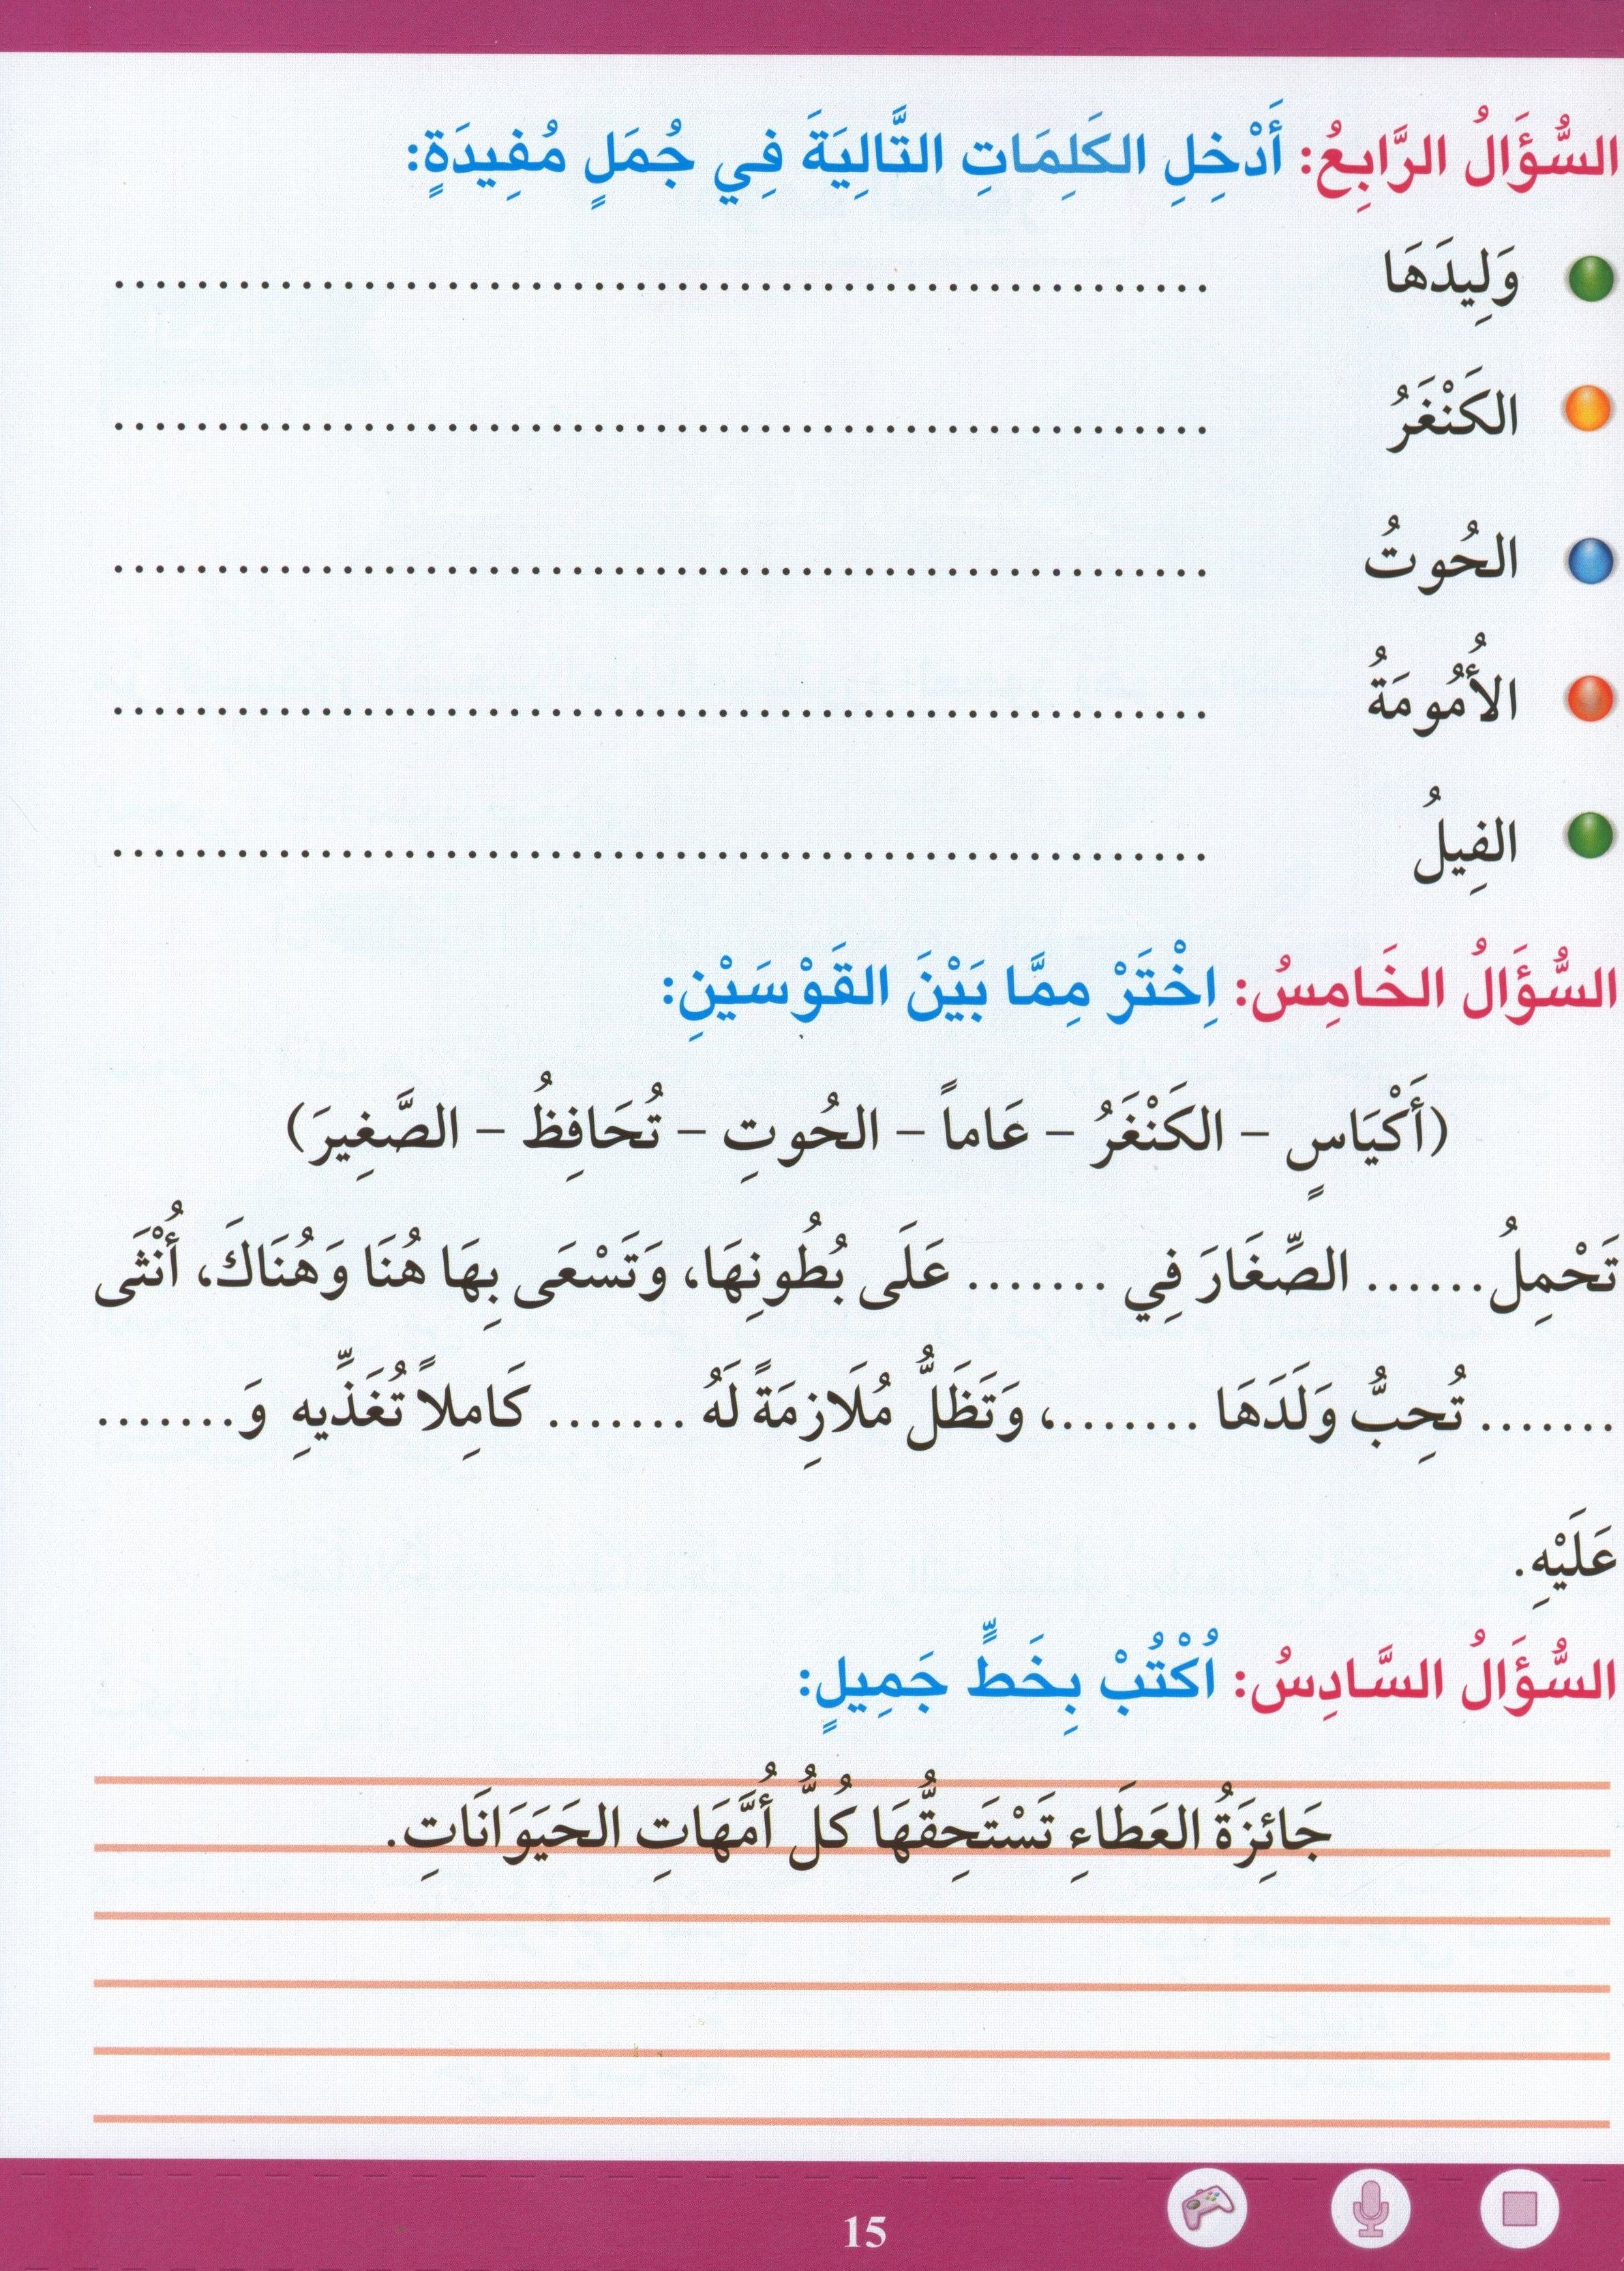 السُّؤَالُ الرَّابِعُ: أَدْخِلِ الكَلِمَاتِ التَّالِيَةَ فِي جُمَلٍ مُفِيدَةٍ:
وَلِيدَهَا ....................................................
الكَنْغَرُ ....................................................
الحُوتُ ....................................................
الأُمُومَةُ ....................................................
الفِيلُ ....................................................
السُّؤَالُ الخَامِسُ: اِخْتَرْ مِمَّا بَيْنَ القَوْسَيْنِ:
(أَكْيَاسٍ – الكَنْغَرُ – عَاماً – الحُوتِ – تُحَافِظُ – الصَّغِيرَ)
تَحْمِلُ...... الصِّغَارَ فِي ....... عَلَى بُطُونِهَا، وَتَسْعَى بِهَا هُنَا وَهُنَاكَ، أُنْثَى
....... تُحِبُّ وَلَدَهَا .......، وَتَظَلُّ مُلَازِمَةً لَهُ ....... كَامِلاً تُغَذِّيهِ وَ.......
عَلَيْهِ.
السُّؤَالُ السَّادِسُ: اُكْتُبْ بِخَطٍّ جَمِيلٍ:
جَائِزَةُ العَطَاءِ تَسْتَحِقُّهَا كُلُّ أُمَّهَاتِ الحَيَوَانَاتِ.
15